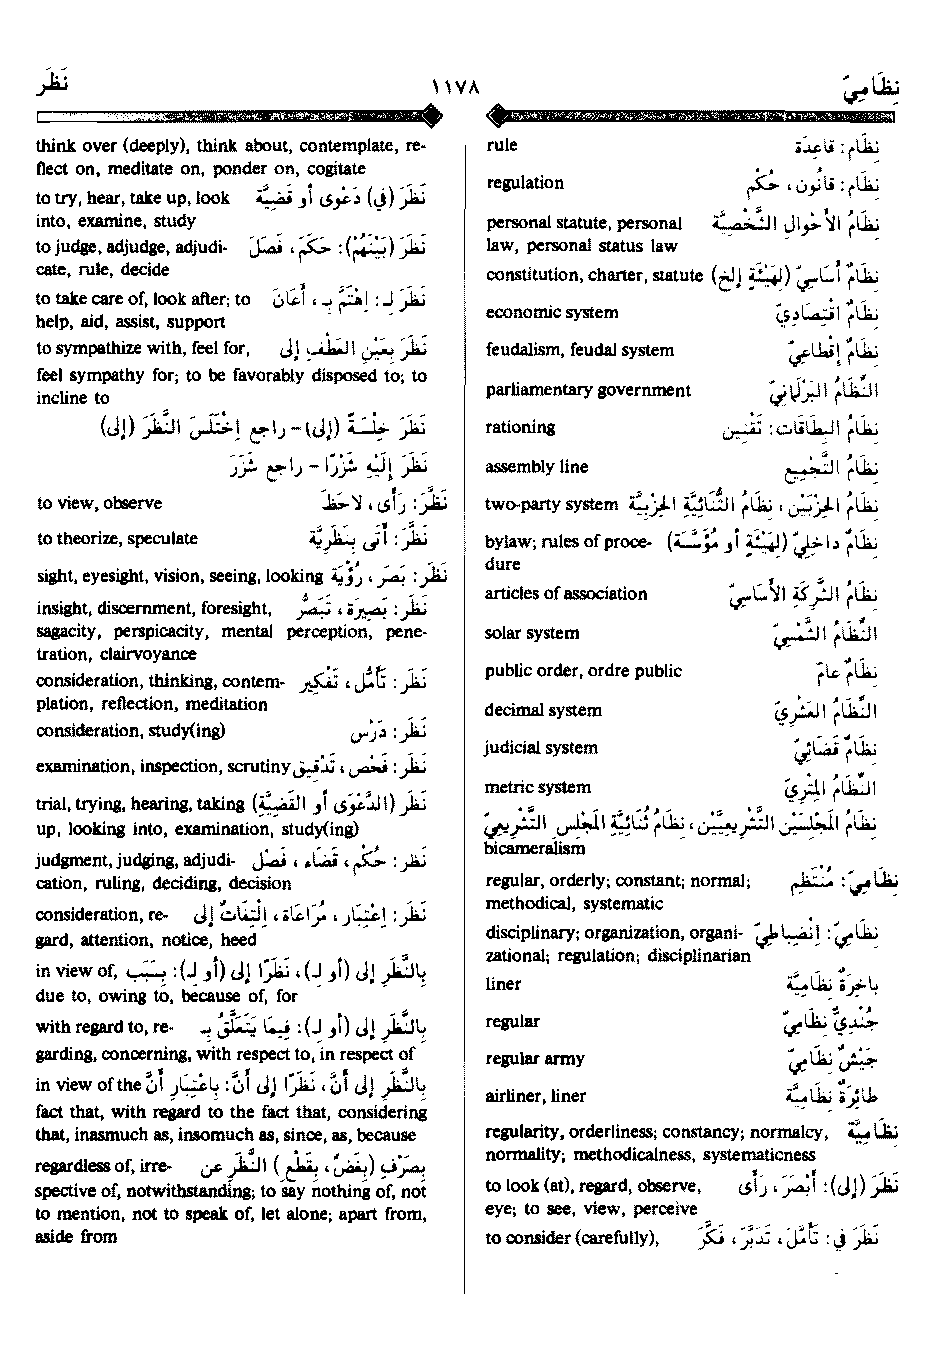 نِظَامِيّ ١١٧٨ نَظَرَ
نِظَام : قاعِدَة rule
نِظَام : قانُون ، حُكْم regulation
نِظَامُ الأحْوالِ الشَّخْصِيَّة personal statute, personal
law, personal status law
نِظَامٌ أساسِيّ (لِهَيْئَةٍ إلخ) constitution, charter, statute
نِظَامٌ اقْتِصَادِيّ economic system
نِظَامٌ إقْطَاعِيّ feudalism, feudal system
النِّظَامُ البَرْلَمَانِيّ parliamentary government
نِظَامُ البِطَاقَات : تَقْنِين rationing
نِظَامُ التَّجْمِيع assembly line
نِظَامُ الحِزْبَيْن ، نِظَامُ الثُّنَائِيَّةِ الحِزْبِيَّة two-party system
نِظَامٌ داخِلِيّ (لِهَيْئَةٍ أو مُؤَسَّسَة) bylaw; rules of proce-
dure
نِظَامُ الشَّرِكَةِ الأسَاسِيّ articles of association
النِّظَامُ الشَّمْسِيّ solar system
نِظَامٌ عَامّ public order, ordre public
النِّظَامُ العَشْرِيّ decimal system
نِظَامٌ قَضَائِيّ judicial system
النِّظَامُ المِتْرِيّ metric system
نِظَامُ المَجْلِسَيْنِ التَّشْرِيعِيَّيْن ، نِظَامُ ثُنَائِيَّةِ المَجْلِسِ التَّشْرِيعِيّ
bicameralism
نِظَامِيّ : مُنْتَظِم regular, orderly; constant; normal;
methodical, systematic
نِظَامِيّ : انْضِبَاطِيّ disciplinary; organization, organi-
zational; regulation; disciplinarian
باخِرَةٌ نِظَامِيَّة liner
جُنْدِيٌّ نِظَامِيّ regular
جَيْشٌ نِظَامِيّ regular army
طَائِرَةٌ نِظَامِيَّة airliner, liner
نِظَامِيَّة regularity, orderliness; constancy; normalcy,
normality; methodicalness, systematicness
نَظَرَ (إلى) : أَبْصَرَ ، رَأَى to look (at), regard, observe,
eye; to see, view, perceive
نَظَرَ في : تَأَمَّلَ ، تَدَبَّرَ ، فَكَّرَ to consider (carefully),
think over (deeply), think about, contemplate, re-
flect on, meditate on, ponder on, cogitate
نَظَرَ (في) دَعْوَى أو قَضِيَّة to try, hear, take up, look
into, examine, study
نَظَرَ (بَيْنَهُم) : حَكَمَ ، فَصَلَ to judge, adjudge, adjudi-
cate, rule, decide
نَظَرَ لـِ : اِهْتَمَّ بـِ ، أَعَانَ to take care of, look after; to
help, aid, assist, support
نَظَرَ بِعَيْنِ العَطْفِ إلى to sympathize with, feel for,
feel sympathy for; to be favorably disposed to; to
incline to
نَظَرَ خِلْسَةً (إلى) - راجع اِخْتَلَسَ النَّظَرَ (إلى)
نَظَرَ إلَيْهِ شَزْرًا - راجع شَزَرَ
نَظَّرَ : رَأَى ، لاحَظَ to view, observe
نَظَّرَ : أَتَى بِنَظَرِيَّة to theorize, speculate
نَظَر : بَصَر ، رُؤْيَة sight, eyesight, vision, seeing, looking
نَظَر : بَصِيرَة ، تَبَصُّر insight, discernment, foresight,
sagacity, perspicacity, mental perception, pene-
tration, clairvoyance
نَظَر : تَأَمُّل ، تَفْكِير consideration, thinking, contem-
plation, reflection, meditation
نَظَر : دَرْس consideration, study(ing)
نَظَر : فَحْص ، تَدْقِيق examination, inspection, scrutiny
نَظَر (الدَّعْوَى أو القَضِيَّة) trial, trying, hearing, taking
up, looking into, examination, study(ing)
نَظَر : حُكْم ، قَضَاء ، فَصْل judgment, judging, adjudi-
cation, ruling, deciding, decision
نَظَر : اِعْتِبَار ، مُرَاعَاة ، اِلْتِفَاتٌ إلى consideration, re-
gard, attention, notice, heed
بِالنَّظَرِ إلى (أو لـِ) ، نَظَرًا إلى (أو لـِ) : بِسَبَبِ in view of,
due to, owing to, because of, for
بِالنَّظَرِ إلى (أو لـِ) : فِيمَا يَتَعَلَّقُ بـِ with regard to, re-
garding, concerning, with respect to, in respect of
بِالنَّظَرِ إلى أنَّ ، نَظَرًا إلى أنَّ : بِاعْتِبَارِ أنَّ in view of the
fact that, with regard to the fact that, considering
that, inasmuch as, insomuch as, since, as, because
بِصَرْفِ (بِغَضِّ ، بِقَطْعِ) النَّظَرِ عن regardless of, irre-
spective of, notwithstanding; to say nothing of, not
to mention, not to speak of, let alone; apart from,
aside from